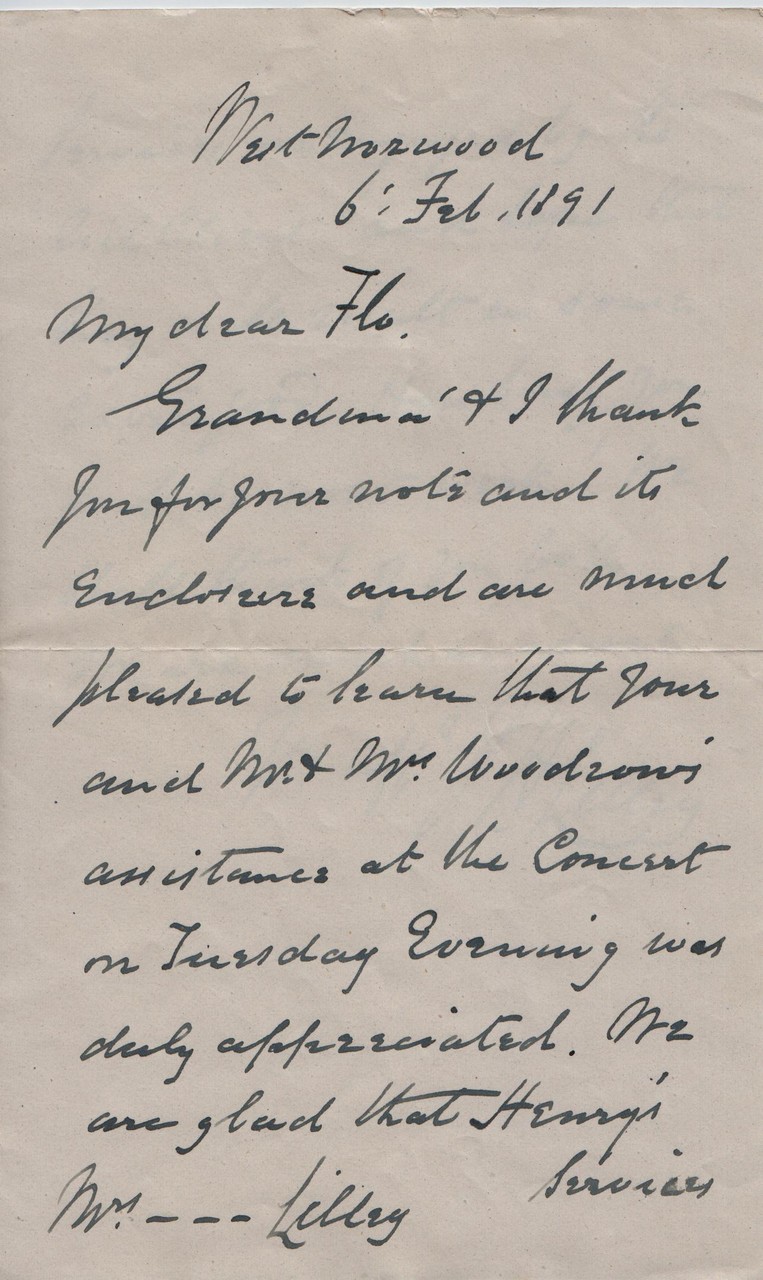 West Norwood
6: Feb. 1891
My dear Flo.
Grandma' & I thank
you for your note and its
Enclosure and are much
pleased to learn that your
and Mr. & Mrs Woodrow's
assistance at the Concert
on Tuesday Evening was
duly appreciated. We
are glad that Henry's
Services
Mrs - - - Lilley